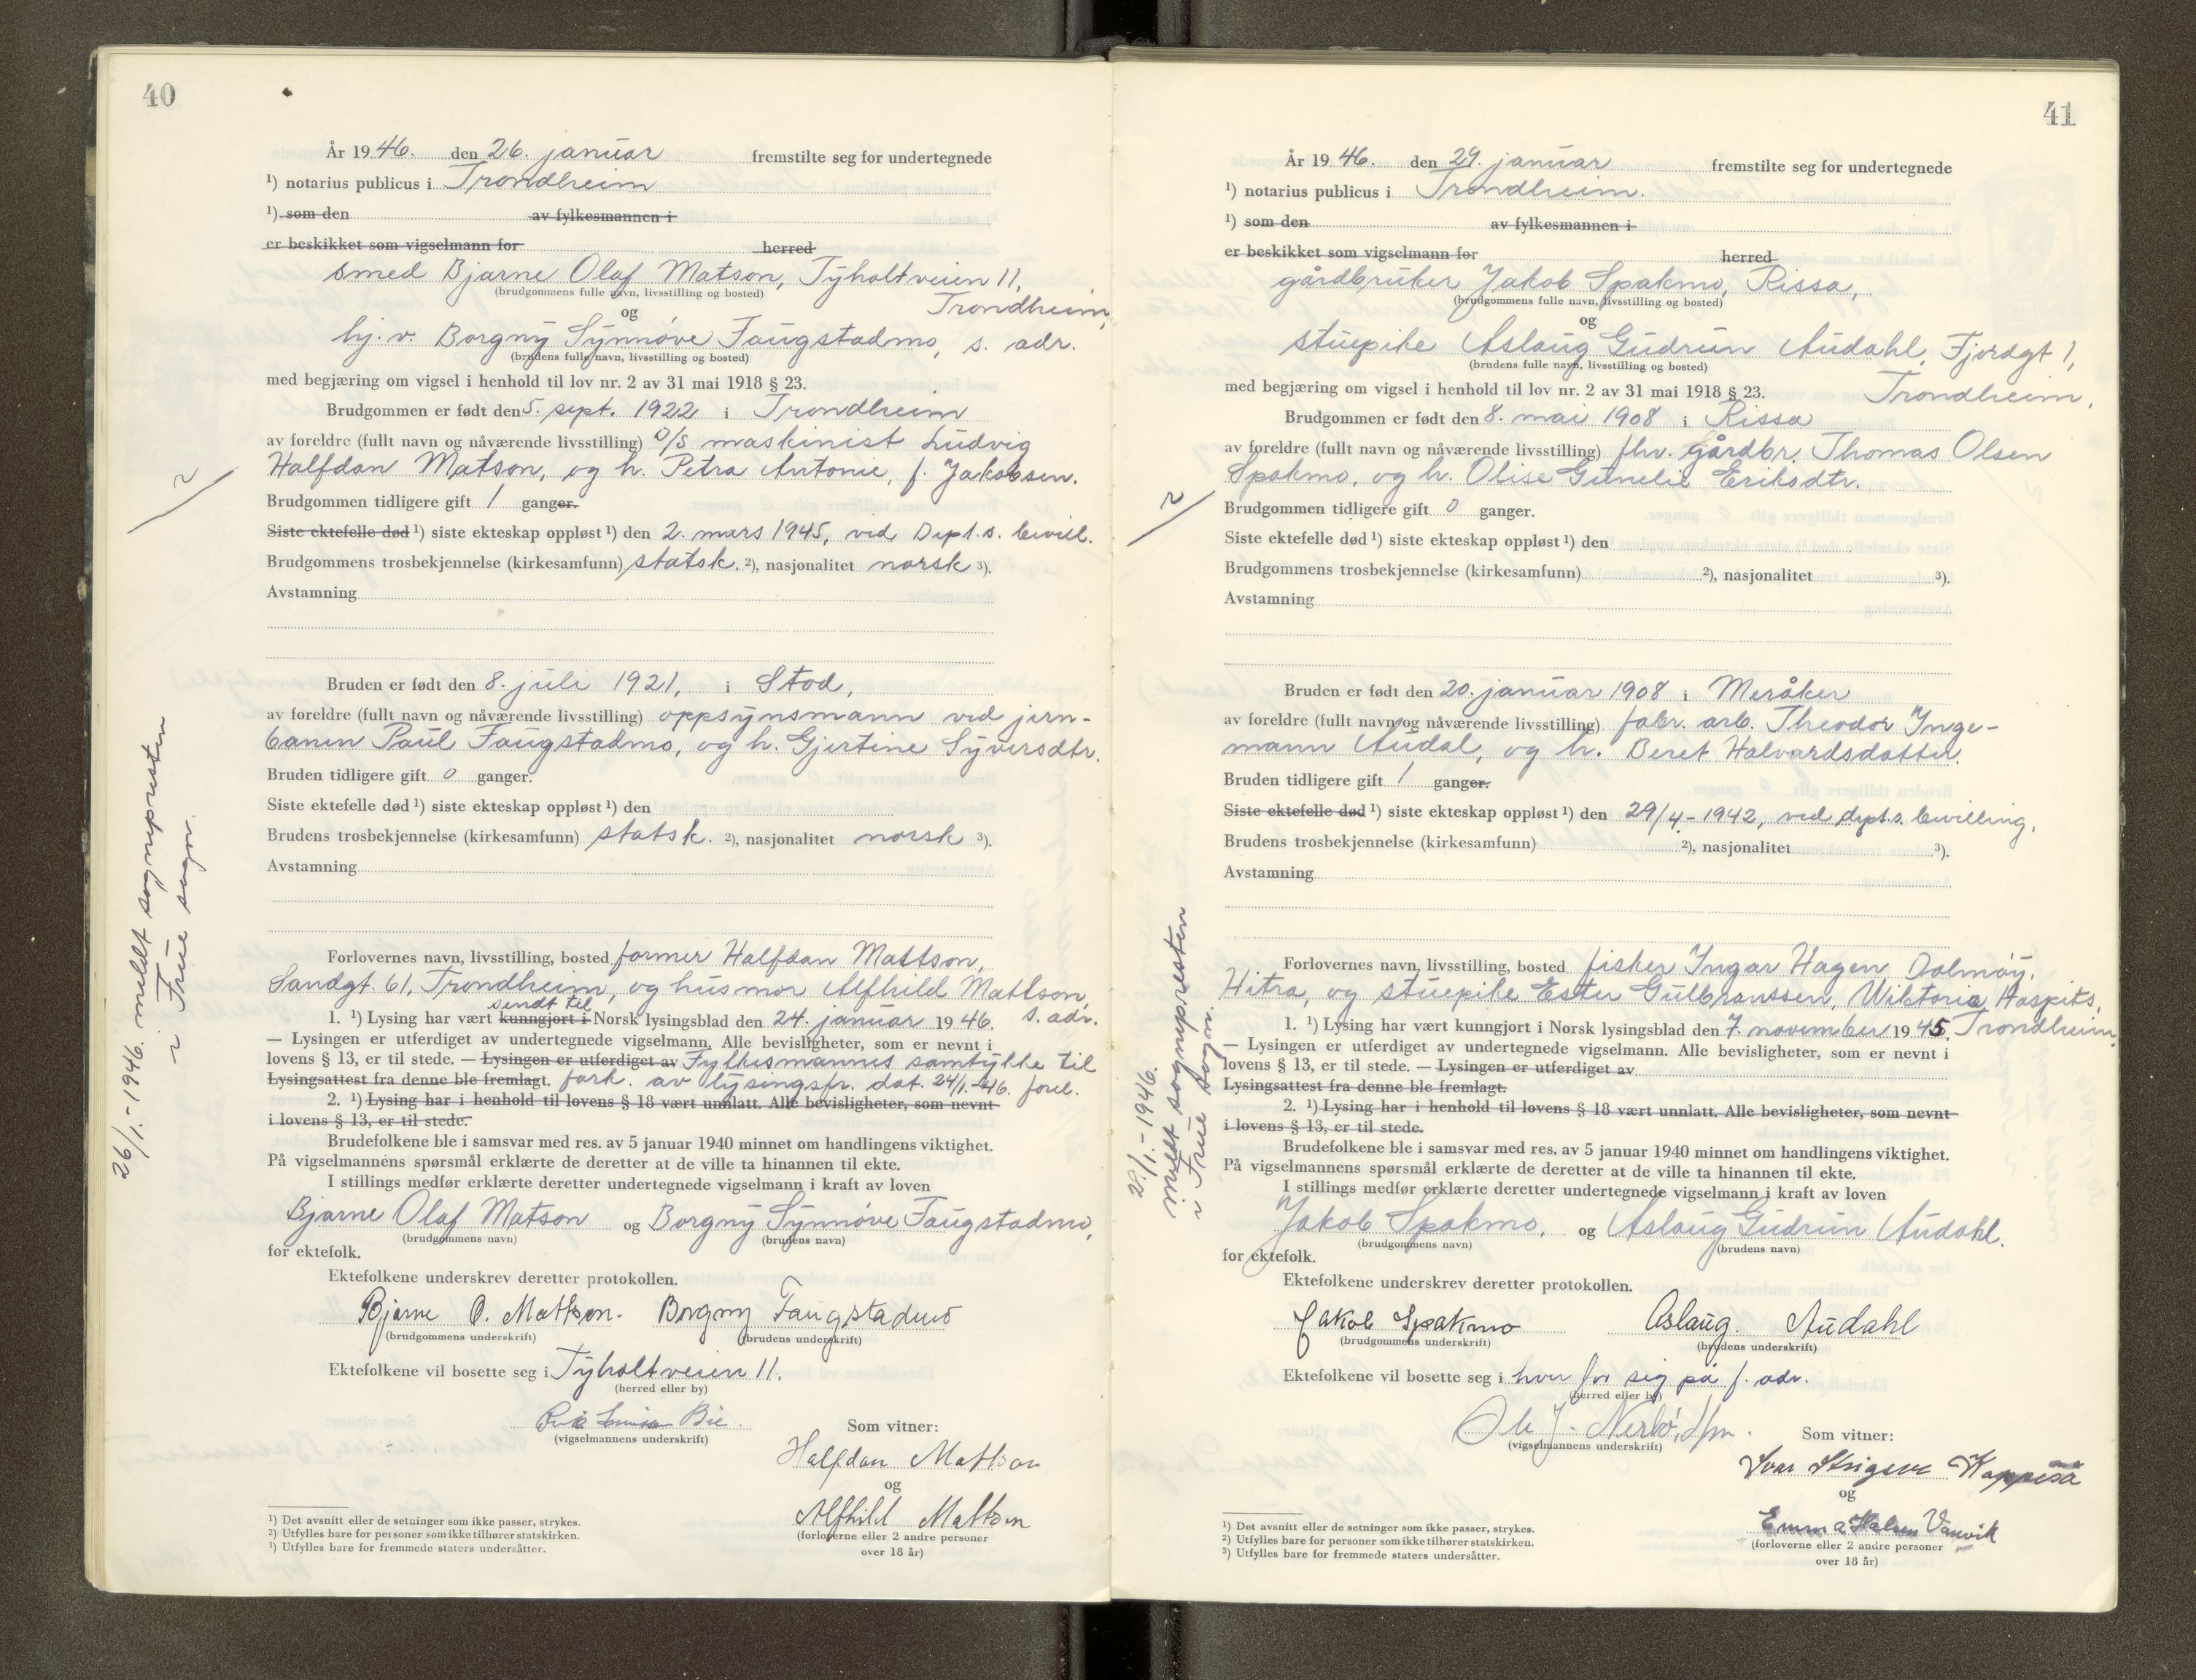 40
År 19 46. den 26. januar fremstilte seg for undertegnede
¹) notarius publicus i Trondheim
¹) som den av fylkesmannen i
er beskikket som vigselmann for herred
smed Bjarne Olaf Matson, Tyholtveien 11,
(brudgommens fulle navn, livsstilling og bosted)
Trondheim,
og
hj.v. Borgny Synnöve Faugstadmo, s. adr.
(brudens fulle navn, livsstilling og bosted)
med begjæring om vigsel i henhold til lov nr. 2 av 31 mai 1918 § 23.
Brudgommen er født den 5. sept. 1922 i Trondheim
av foreldre (fullt navn og nåværende livsstilling) o/s maskinist Ludvig
Halfdan Matson, og h. Petra Antonie, f. Jakobsen.
Brudgommen tidligere gift 1 ganger.
Siste ektefelle død ¹) siste ekteskap oppløst ¹) den 2. mars 1945, ved Dept.s. bevill.
Brudgommens trosbekjennelse (kirkesamfunn) statsk. ²), nasjonalitet norsk ³).
Avstamning
Bruden er født den 8. juli 1921, i Stod,
av foreldre (fullt navn og nåværende livsstilling) oppsynsmann ved jern-
banen Paul Faugstadmo, og h. Gjertine Syversdtr.
Bruden tidligere gift 0 ganger.
Siste ektefelle død ¹) siste ekteskap oppløst ¹) den
Brudens trosbekjennelse (kirkesamfunn) statsk. ²), nasjonalitet norsk ³).
Avstamning
Forlovernes navn, livsstilling, bosted former Halfdan Mattson,
Sandgt. 61, Trondheim, og husmor Alfhild Mattson,
s. adr.
sendt til
1. ¹) Lysing har vært kunngjort i Norsk lysingsblad den 24. januar 19 46.
— Lysingen er utferdiget av undertegnede vigselmann. Alle bevisligheter, som er nevnt i
lovens § 13, er til stede. — Lysingen er utferdiget av Fylkesmannes samtykke til
Lysingsattest fra denne ble fremlagt. fork. av lysingsfr. dat. 24/1.-46. forel.
2. ¹) Lysing har i henhold til lovens § 18 vært unnlatt. Alle bevisligheter, som nevnt
i lovens § 13, er til stede.
Brudefolkene ble i samsvar med res. av 5 januar 1940 minnet om handlingens viktighet.
På vigselmannens spørsmål erklærte de deretter at de ville ta hinannen til ekte.
I stillings medfør erklærte deretter undertegnede vigselmann i kraft av loven
Bjarne Olaf Matson og Borgny Synnöve Faugstadmo,
(brudgommens navn) (brudens navn)
for ektefolk.
Ektefolkene underskrev deretter protokollen.
Bjarne O. Mattson. Borgny Faugstadmo
(brudgommens underskrift) (brudens underskrift)
Ektefolkene vil bosette seg i Tyholtveien 11.
(herred eller by)
Bie.
(vigselmannens underskrift)
Som vitner:
Halfdan Mattson
og
Alfhild Mattson
(forloverne eller 2 andre personer
over 18 år)
¹) Det avsnitt eller de setninger som ikke passer, strykes.
²) Utfylles bare for personer som ikke tilhører statskirken.
³) Utfylles bare for fremmede staters undersåtter.
26/1.-1946. meldt sognepresten
i Frue sogn.
41
År 19 46. den 29. januar fremstilte seg for undertegnede
¹) notarius publicus i Trondheim.
¹) som den av fylkesmannen i
er beskikket som vigselmann for herred
gårdbruker Jakob Spakmo, Rissa,
(brudgommens fulle navn, livsstilling og bosted)
og
stuepike Aslaug Gudrun Audahl, Fjordgt 1,
(brudens fulle navn, livsstilling og bosted)
Trondheim,
med begjæring om vigsel i henhold til lov nr. 2 av 31 mai 1918 § 23.
Brudgommen er født den 8. mai 1908 i Rissa
av foreldre (fullt navn og nåværende livsstilling) fhv. gårdbr. Thomas Olsen
Spakmo, og h. Olise Gunelie Eriksdtr.
Brudgommen tidligere gift 0 ganger.
Siste ektefelle død ¹) siste ekteskap oppløst ¹) den
Brudgommens trosbekjennelse (kirkesamfunn) ²), nasjonalitet ³).
Avstamning
Bruden er født den 20. januar 1908 i Meråker
av foreldre (fullt navn og nåværende livsstilling) fabr. arb. Theodor Inge-
mann Audal, og h. Beret Halvardsdatter.
Bruden tidligere gift 1 ganger.
Siste ektefelle død ¹) siste ekteskap oppløst ¹) den 29/4.-1942, ved dept.s. bevilling.
Brudens trosbekjennelse (kirkesamfunn) ²), nasjonalitet ³).
Avstamning
Forlovernes navn, livsstilling, bosted fisker Ingar Hagen, Dolmöy,
Hitra, og stuepike Ester Gulbranssen, Wiktoria Hospits,
1. ¹) Lysing har vært kunngjort i Norsk lysingsblad den 7. november 19 45. Trondheim,
— Lysingen er utferdiget av undertegnede vigselmann. Alle bevisligheter, som er nevnt i
lovens § 13, er til stede. — Lysingen er utferdiget av
Lysingsattest fra denne ble fremlagt.
2. ¹) Lysing har i henhold til lovens § 18 vært unnlatt. Alle bevisligheter, som nevnt
i lovens § 13, er til stede.
Brudefolkene ble i samsvar med res. av 5 januar 1940 minnet om handlingens viktighet.
På vigselmannens spørsmål erklærte de deretter at de ville ta hinannen til ekte.
I stillings medfør erklærte deretter undertegnede vigselmann i kraft av loven
Jakob Spakmo, og Aslaug Gudrun Audahl.
(brudgommens navn) (brudens navn)
for ektefolk.
Ektefolkene underskrev deretter protokollen.
Jakob Spakmo Aslaug. Audahl
(brudgommens underskrift) (brudens underskrift)
Ektefolkene vil bosette seg i hver for sig på f. adr.
(herred eller by)
(vigselmannens underskrift)
Som vitner:
Ivar
og
Emma Vanvik
(forloverne eller 2 andre personer
over 18 år)
¹) Det avsnitt eller de setninger som ikke passer, strykes.
²) Utfylles bare for personer som ikke tilhører statskirken.
³) Utfylles bare for fremmede staters undersåtter.
29/1.-1946.
meldt sognepresten
i Frue sogn.